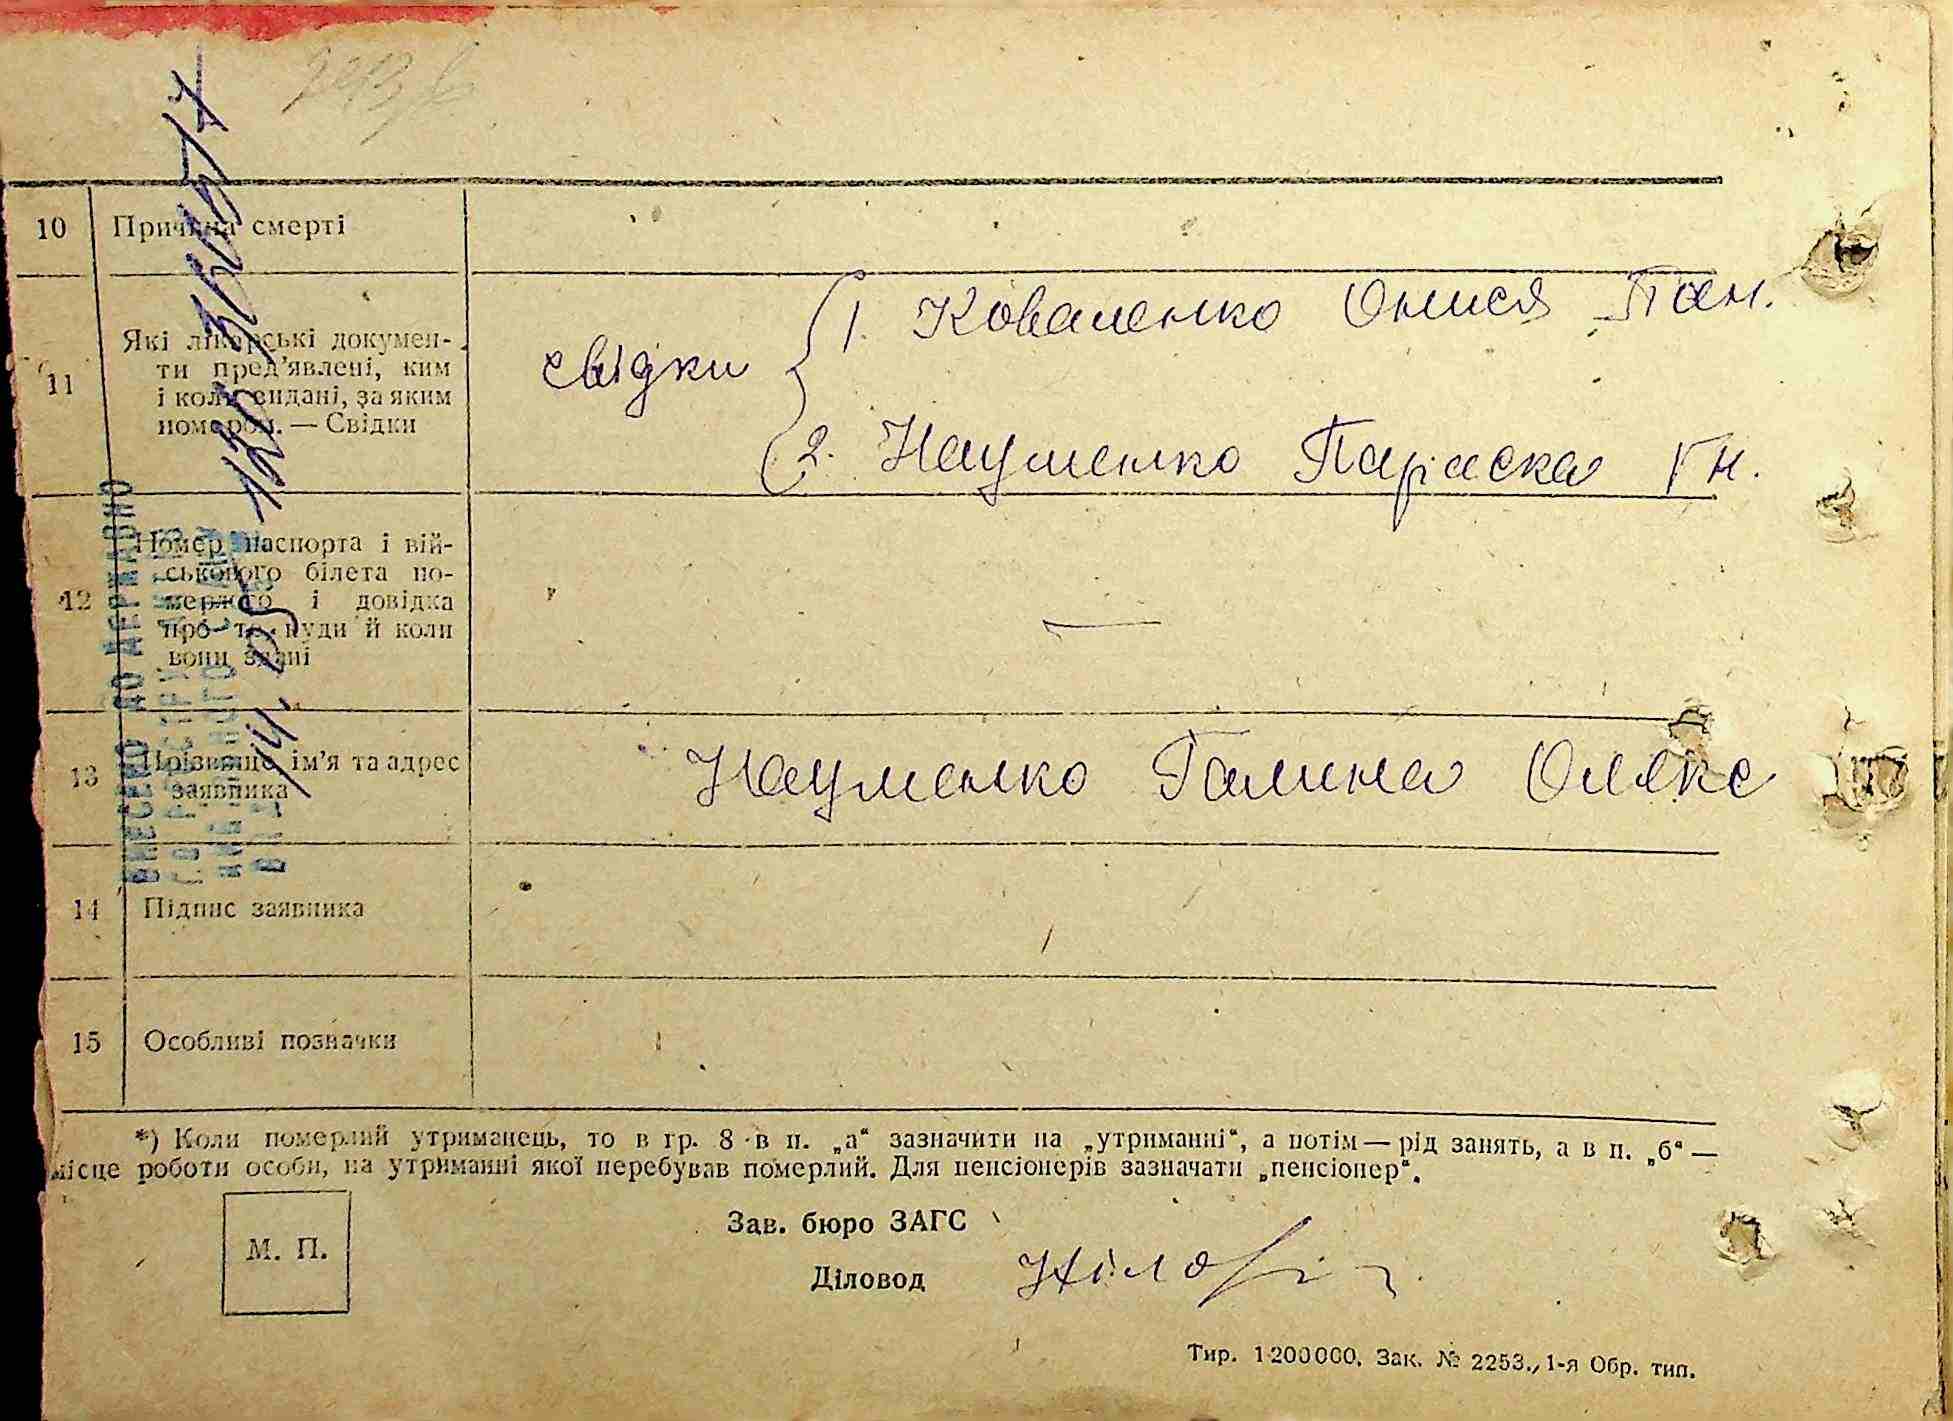 10 Причина смерті
11 Які лікарські докумен-
ти пред’явлені, ким
і коли видані, за яким
номером. — Свідки
свідки
1. Коваленко Онися Пан.
2. Науменко Параска Гн.
12 Номер паспорта і вій-
ськового білета по-
мерлого і довідка
про те, куди й коли
вони здані
—
13 Прізвище, ім’я та адрес
заявника
Науменко Галина Олекс
14 Підпис заявника
15 Особливі позначки
*) Коли померлий утриманець, то в гр. 8 в п. „а“ зазначити на „утриманні“, а потім — рід занять, а в п. „б“ —
місце роботи особи, на утриманні якої перебував померлий. Для пенсіонерів зазначати „пенсіонер“.
М. П.
Зав. бюро ЗАГС
Діловод
Тир. 1200000. Зак. № 2253., 1-я Обр. тип.
ВНЕСЕНО ДО ДЕРЖАВНО
ГО РЕЄСТРУ АКТІВ
ЦИВІЛЬНОГО СТАНУ